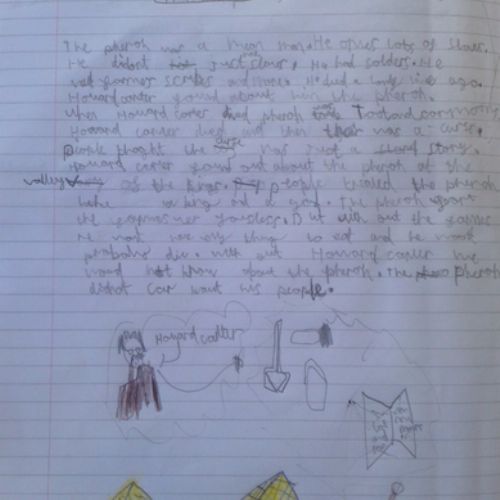 The pheroh was a mean man. He ownes lots of slaves.
He didnt just slavs. He had solders. He
farmers scribes and more. He died a long time ago.
Howard carter found about him the pheroh.
when Howard carter pheroh
Howard carter died and then thair was a curse.
people thoght the curse was just a story.
Howard carter found out about the pheroh at the
valley of the kings. people treated the pheroh
like a king and a god. The pheroh
the farmos wer yousless. But with out the farmes
he wod not have any thing to eat and he wood
probably die. with out Howard carter we
wood not know about the pheroh. The pheroh
didnt car about his people.
Howard carter